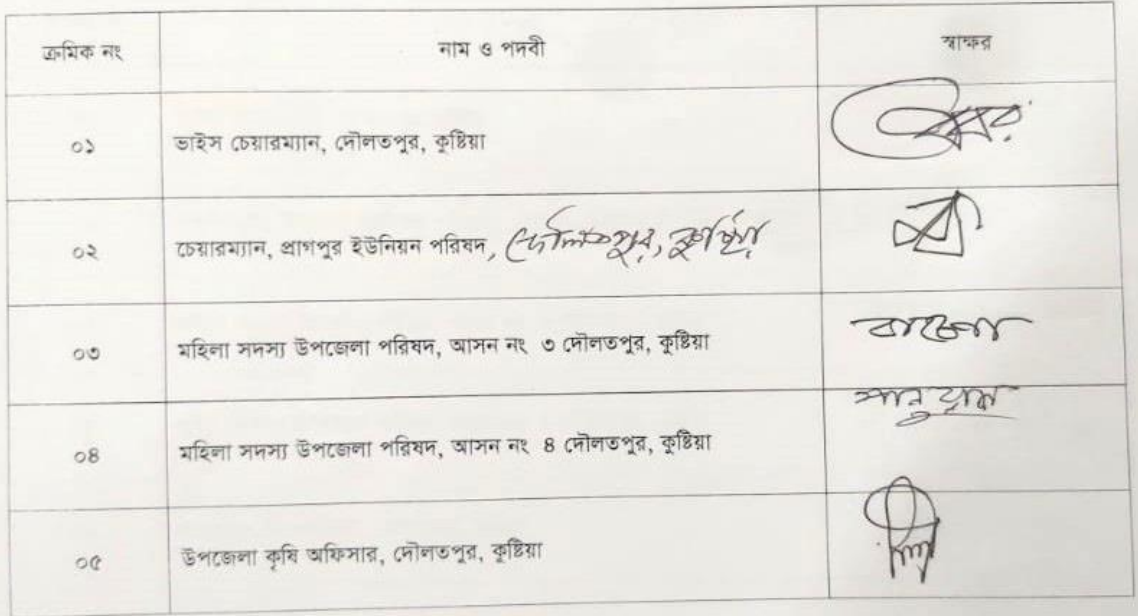 ক্রমিক নং নাম ও পদবী স্বাক্ষর
০১ ভাইস চেয়ারম্যান, দৌলতপুর, কুষ্টিয়া
০২ চেয়ারম্যান, প্রাগপুর ইউনিয়ন পরিষদ, দৌলতপুর, কুষ্টিয়া
০৩ মহিলা সদস্য উপজেলা পরিষদ, আসন নং ৩ দৌলতপুর, কুষ্টিয়া
০৪ মহিলা সদস্য উপজেলা পরিষদ, আসন নং ৪ দৌলতপুর, কুষ্টিয়া
০৫ উপজেলা কৃষি অফিসার, দৌলতপুর, কুষ্টিয়া